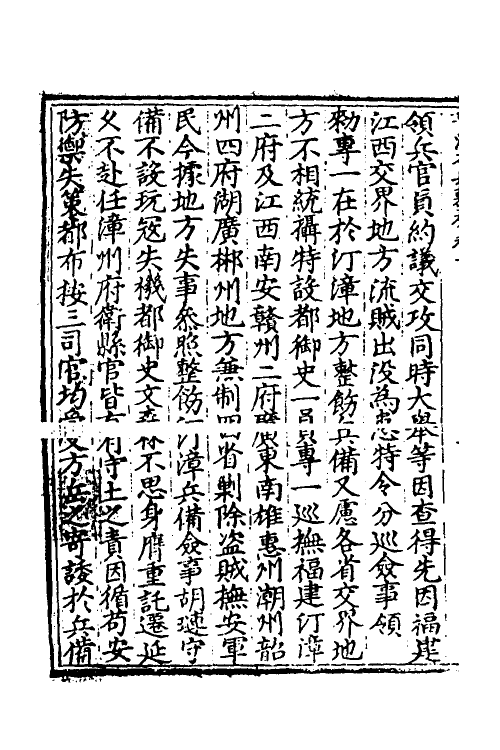 領兵官員約議交攻同時大舉等因查得先因福建
江西交界地方流賊出没為患特令分巡僉事領
勑專一在於汀漳地方整飭兵備又慮各省交界地
方不相統攝特設都御史一員專一巡撫福建汀漳
二府及江西南安贛州二府廣東南雄惠州潮州韶
州四府湖廣郴州地方兼制四省剿除盗賊撫安軍
民今據地方失事叅照整飭汀漳兵備僉事胡璉守
備不設玩冦失機都御史文森不思身膺重託遷延
久不赴任漳州府衛縣官皆有守土之責因循苟安
防禦失策都布按三司官均受方岳之寄諉於兵備